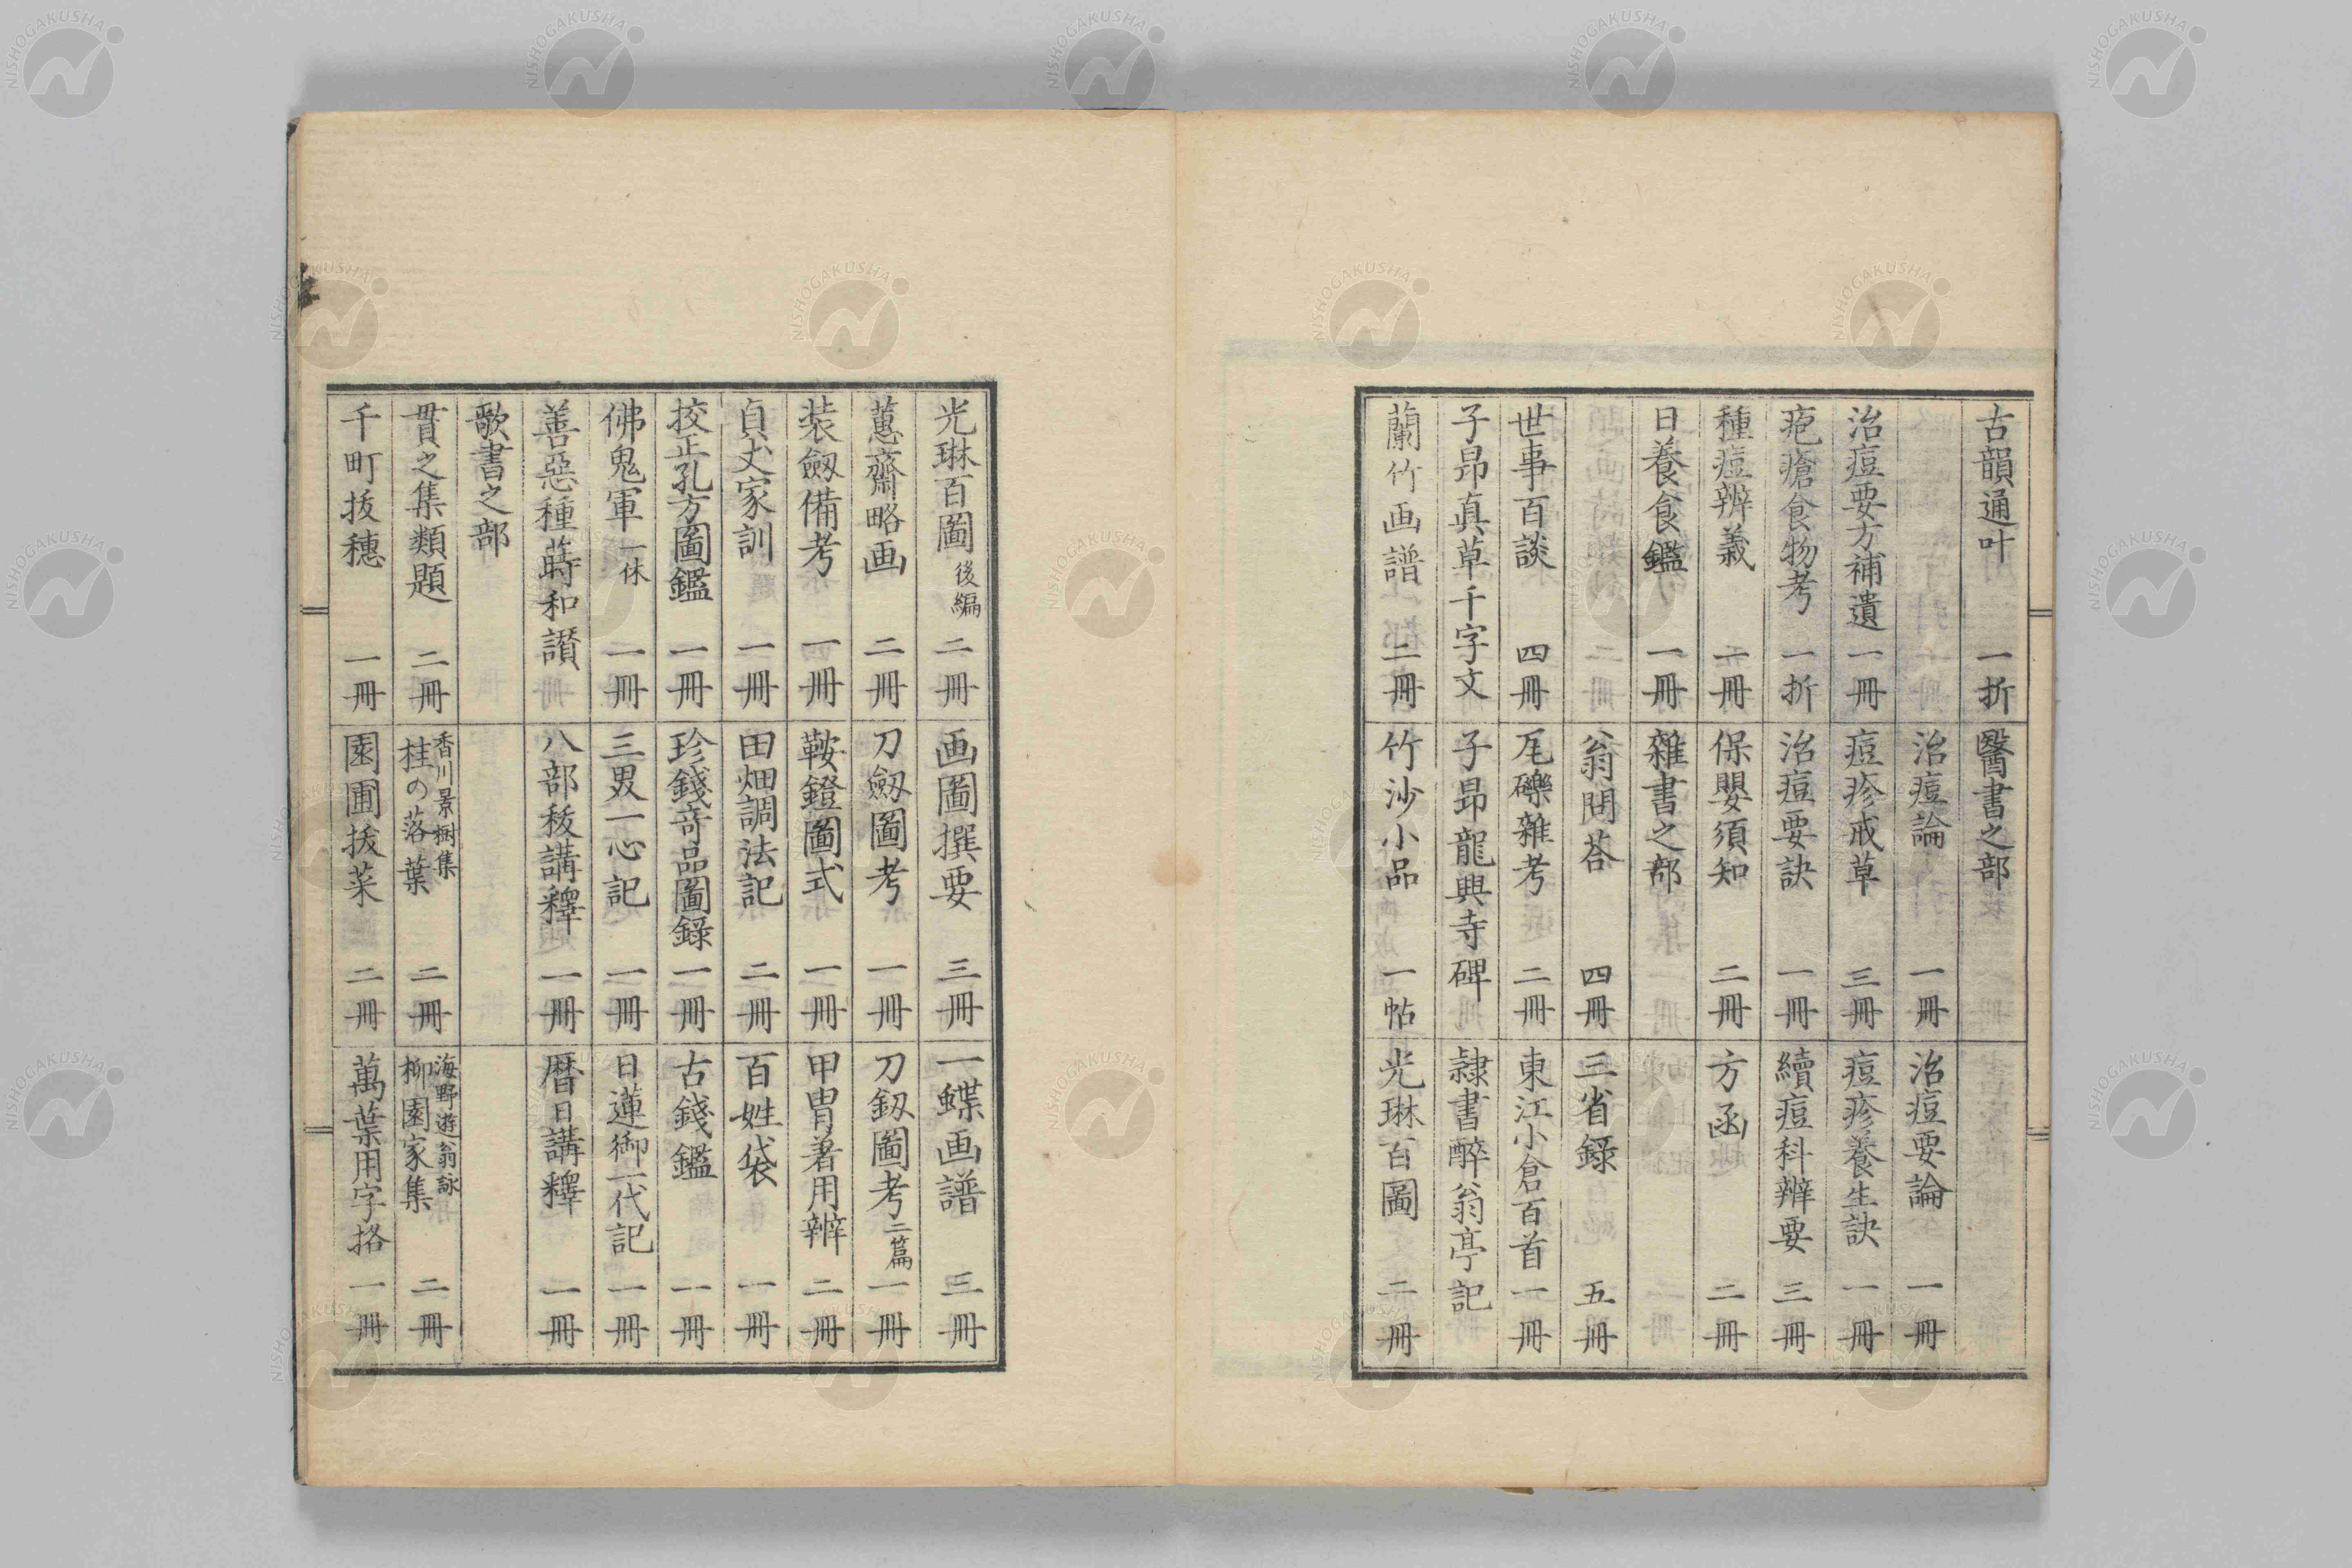 古韻通叶 一折
醫書之部
治痘論 一冊
治痘要論 一冊
治痘要方補遺 一冊
痘疹戒草 三冊
痘疹養生訣 一冊
疱瘡食物考 一折
治痘要訣 一冊
續痘科辨要 三冊
種痘辨義 一冊
保嬰須知 二冊
方函 二冊
日養食鑑 一冊
雜書之部
翁問荅 四冊
三省録 五冊
世事百談 四冊
尾礫雜考 二冊
東江小倉百首 一冊
子昂真草千字文
子昂龍興寺碑
隷書醉翁亭記
蘭竹画譜 二冊
竹沙小品 一帖
光琳百圖 二冊
光琳百圖 後編 二冊
画圖撰要 三冊
一蝶画譜 三冊
蕙齋略画 二冊
刀劔圖考 一冊
刀釼圖考 二篇 一冊
装劔備考 一冊
鞍鐙圖式 一冊
甲冑著用辨 二冊
貞丈家訓 一冊
田畑調法記 二冊
百姓袋 一冊
挍正孔方圖鑑 一冊
珍錢竒品圖録 一冊
古錢鑑 一冊
佛鬼軍 一休 一冊
三界一心記 一冊
日蓮御一代記 一冊
善惡種蒔和讃
八部秡講釋 一冊
暦日講釋 一冊
歌書之部
貫之集類題 二冊
香川景樹集
桂の落葉 二冊
海野遊翁詠
柳園家集 二冊
千町抜穗 一冊
園圃拔菜 二冊
萬葉用字格 一冊
NISHOGAKUSHA